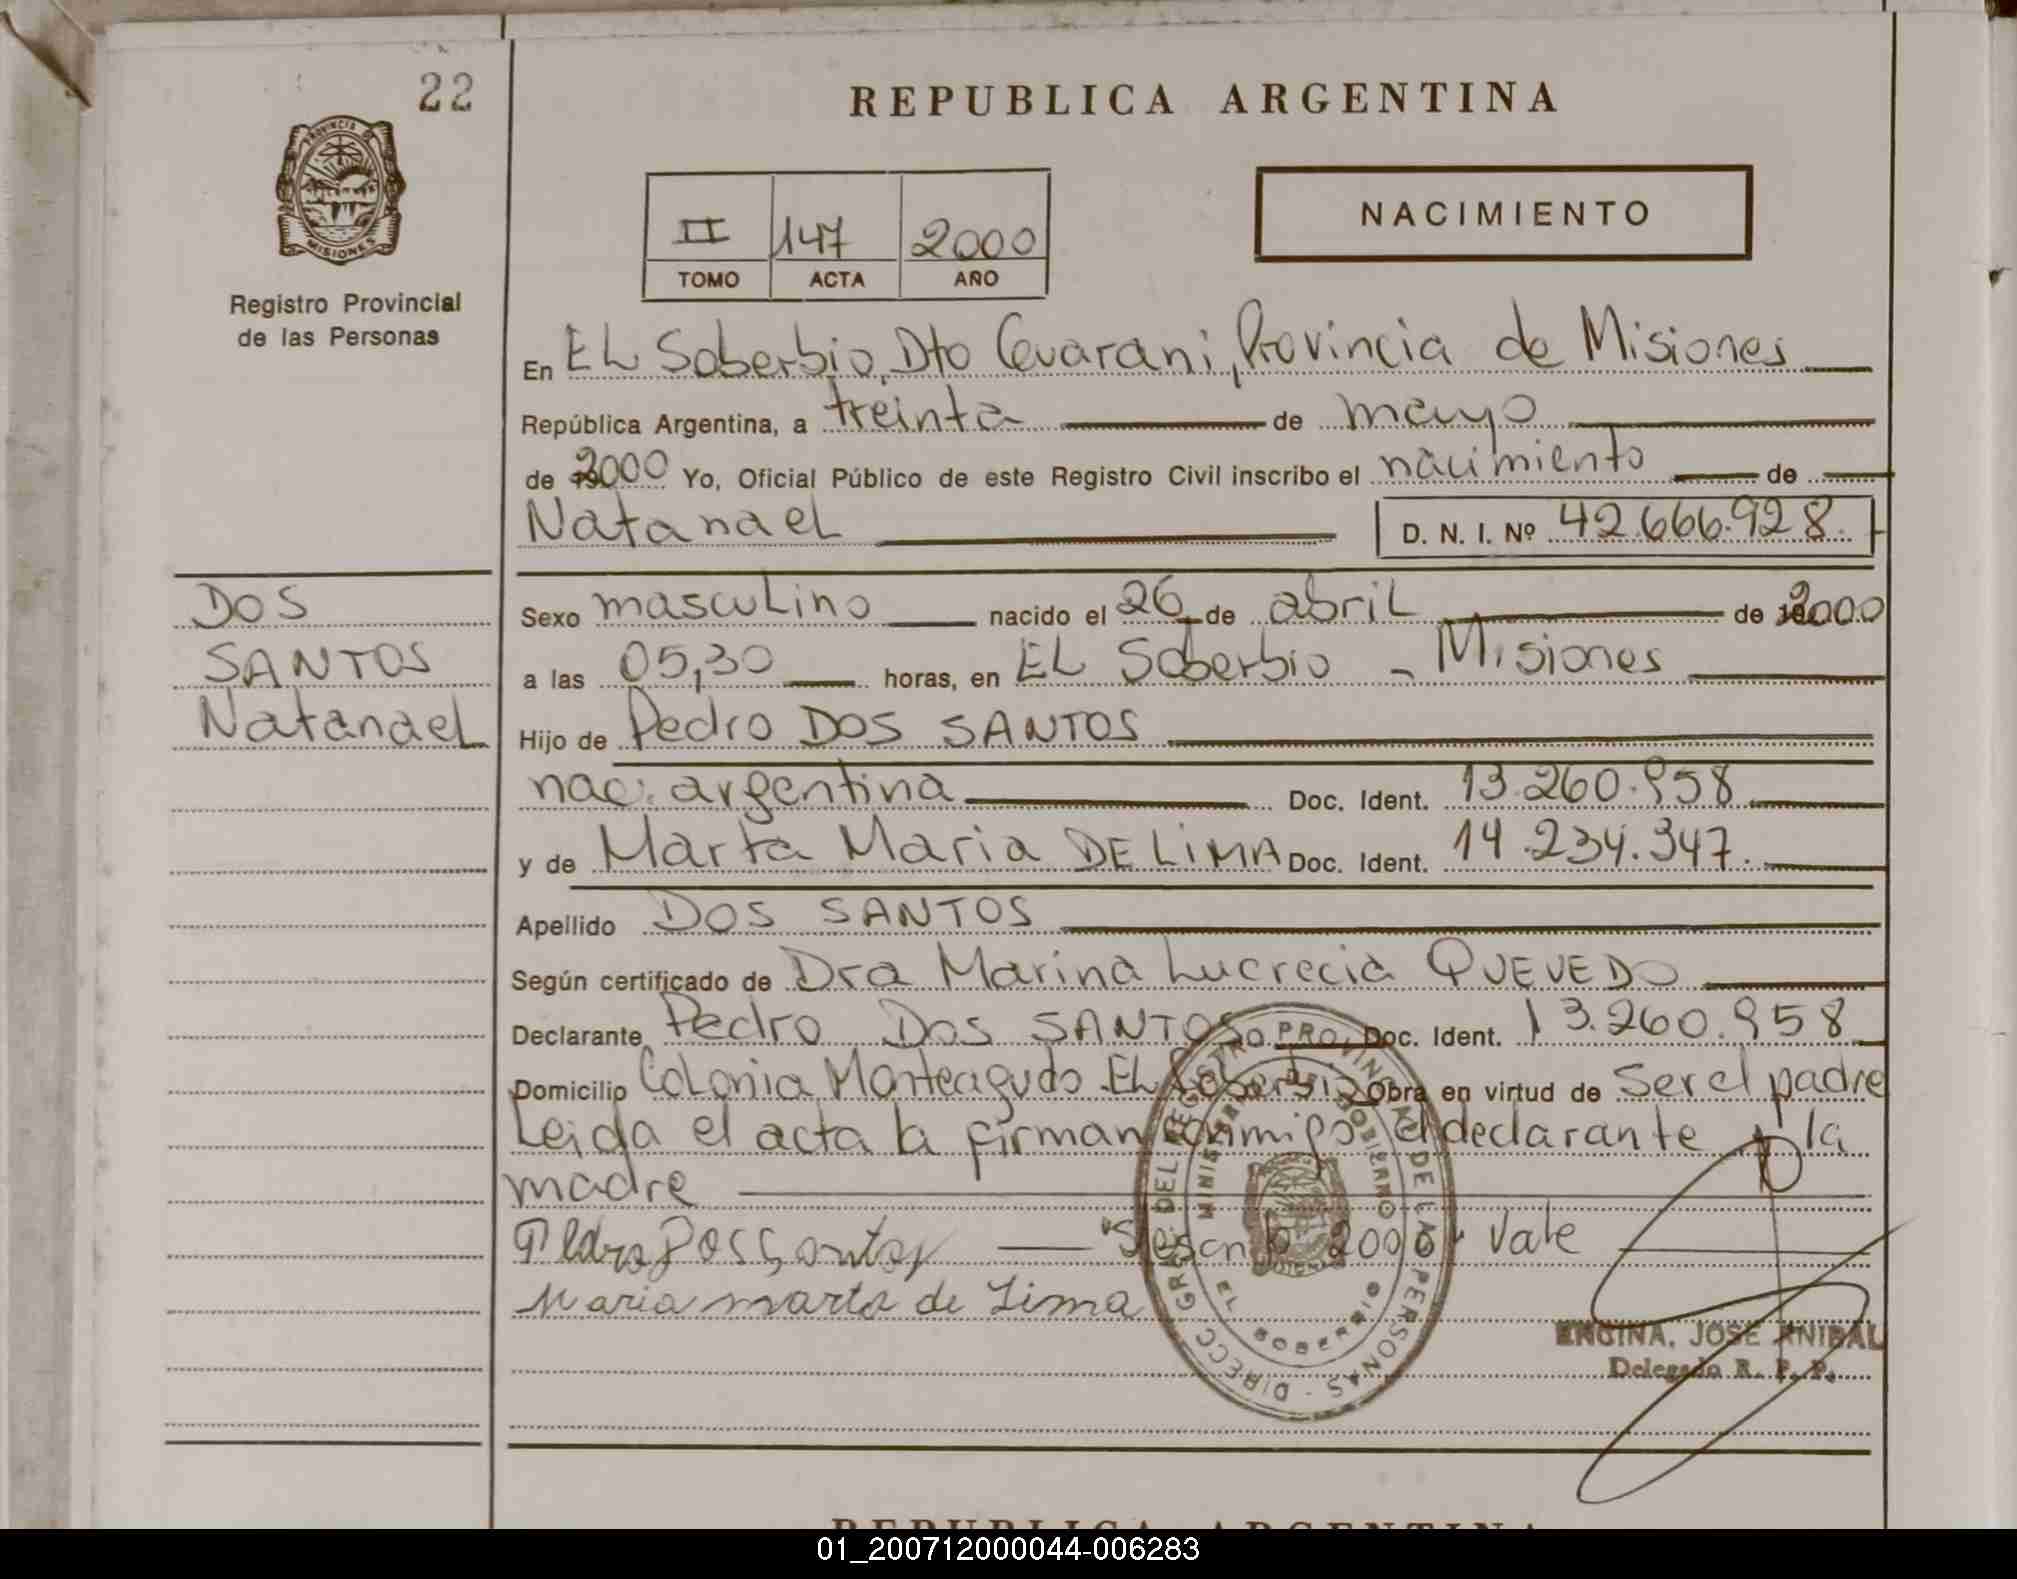 22
REPUBLICA ARGENTINA
PROVINCIA DE
MISIONES
Registro Provincial
de las Personas
NACIMIENTO
II 147 2000
TOMO ACTA AÑO
En EL Soberbio, Dto Guarani, Provincia de Misiones
República Argentina, a treinta de mayo
de 2000 Yo, Oficial Público de este Registro Civil inscribo el nacimiento de
Natanael D. N. I. Nº 42.666.928.
DOS
SANTOS
Natanael
Sexo masculino nacido el 26 de abril de 2000
a las 05,30 horas, en EL Soberbio - Misiones
Hijo de Pedro DOS SANTOS
nac. argentina Doc. Ident. 13.260.958
y de Marta Maria DE LIMA Doc. Ident. 14.234.347.
Apellido DOS SANTOS
Según certificado de Dra Marina Lucrecia QUEVEDO
Declarante Pedro DOS SANTOS Doc. Ident. 13.260.958
Domicilio Colonia Monteagudo EL Soberbio Obra en virtud de Ser el padre
Leida el acta la firman conmigo el declarante y la
madre
Pedro Dos Santos 2000 Vale
Maria marta de Lima
DIRECC GRAL DEL REGISTRO PROVINCIAL DE LAS PERSONAS
MINISTERIO DE GOBIERNO
EL SOBERBIO
ENCINA, JOSE ANIBAL
Delegado R. P. P.
REPUBLICA ARGENTINA
01_200712000044-006283